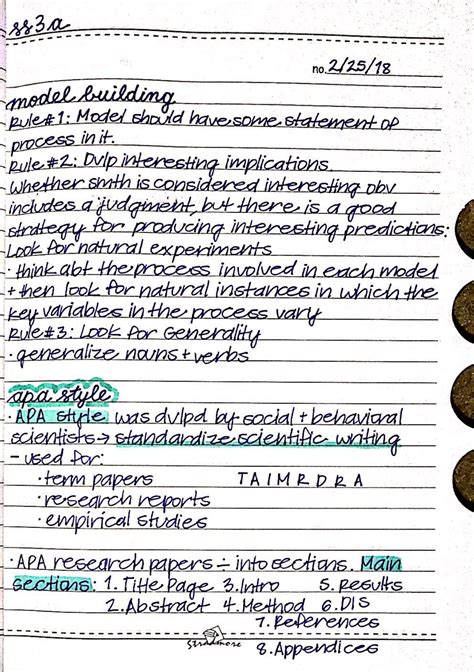 ss3a
no. 2/25/18
model building
Rule #1: Model should have some statement of
process in it.
Rule #2: Dvlp interesting implications
Whether smth is considered interesting obv
includes a judgment, but there is a good
strategy for producing interesting predictions:
Look for natural experiments
· think abt the process involved in each model
+ then look for natural instances in which the
key variables in the process vary
Rule #3: Look for Generality
· generalize nouns + verbs
apa style
· APA style was dvlpd by social + behavioral
scientists → standardize scientific writing
- used for:
· term papers TAIMRDRA
· research reports
· empirical studies
· APA research papers ÷ into sections. Main
sections: 1. Title Page 3. Intro 5. Results
2. Abstract 4. Method 6. DIS
7. References
Strathmore
8. Appendices